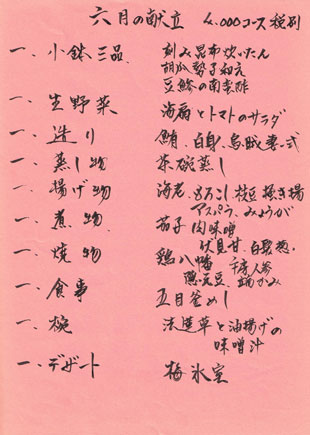 六月の献立 4,000コース税別
一、小鉢三品 刻み昆布炊いたん
胡瓜 和え
豆鯵の南蛮酢
一、生野菜 海藻とトマトのサラダ
一、造り 鮪、白身、烏賊 妻一式
一、蒸し物 茶碗蒸し
一、揚げ物 海老、もろこし、枝豆 掻き揚
アスパラ、みょうが
一、煮物 茄子肉味噌
伏見甘、白髪葱
一、焼物 鶏八幡
豆
一、食事 五目釜めし
一、椀 法蓮草と油揚げの
味噌汁
一、デザート 梅氷室